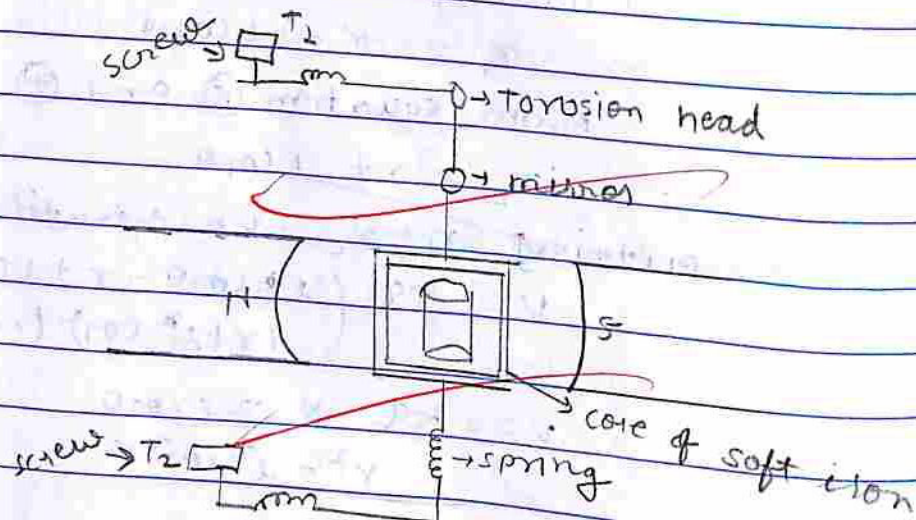 screw T2
Torosion head
mirror
N S
core of soft iron
screw T2
spring